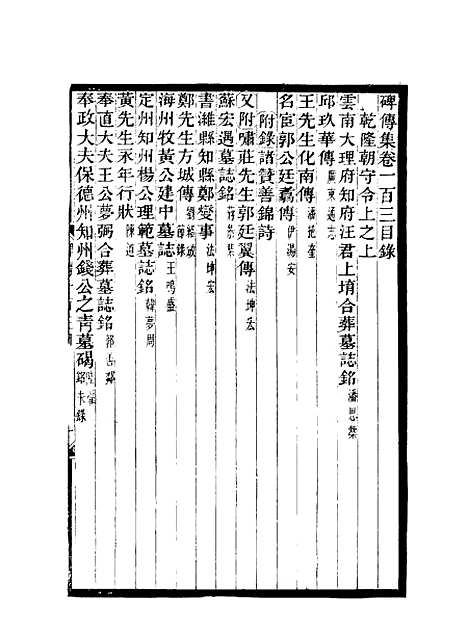 碑傳集卷一百三目錄
乾隆朝守令上之上
雲南大理府知府汪君上堉合葬墓誌銘 潘思榘
邱玖華傳 廣東通志
王先生化南傳 潘祖奎
名宦郭公廷翥傳 伊湯安
附錄諸贊善錦詩
又附嘯莊先生郭廷翼傳 法坤宏
蘇宏遇墓誌銘 蔣榮
書濰縣知縣鄭燮事 法坤宏
鄭先生方城傳
海州牧黃公建中墓誌 王鳴盛
定州知州楊公理範墓誌銘 韓夢周
黃先生永年行狀 陳道
奉直大夫王公夢弼合葬墓誌銘
奉政大夫保德州知州錢公之青墓碣